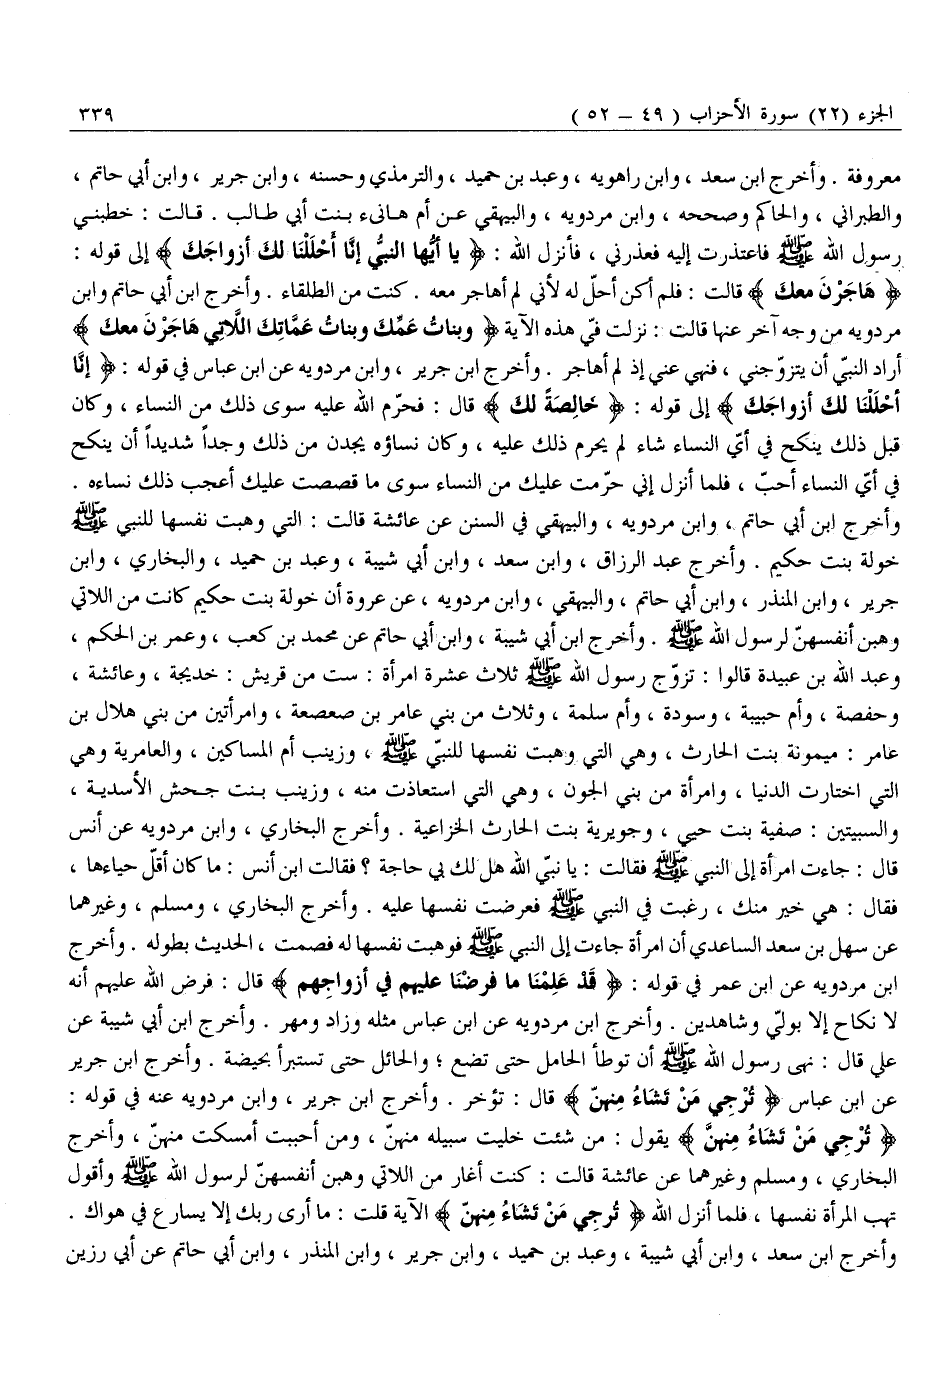 الجزء (٢٢) سورة الأحزاب ( ٤٩ – ٥٢ ) ٣٣٩
معروفة . وأخرج ابن سعد ، وابن راهويه ، وعبد بن حميد ، والترمذي وحسنه ، وابن جرير ، وابن أبي حاتم ،
والطبراني ، والحاكم وصححه ، وابن مردويه ، والبيهقي عن أم هانىء بنت أبي طالب . قالت : خطبني
رسول الله ﷺ فاعتذرت إليه فعذرني ، فأنزل الله : ﴿ يا أيُّها النبيُّ إنَّا أَحْلَلْنَا لكَ أزواجَكَ ﴾ إلى قوله :
﴿ هَاجَرْنَ معكَ ﴾ قالت : فلم أكن أحلّ له لأني لم أهاجر معه . كنت من الطلقاء . وأخرج ابن أبي حاتم وابن
مردويه من وجه آخر عنها قالت : نزلت فيّ هذه الآية ﴿ وبناتُ عَمِّكَ وبناتُ عَمَّاتِكَ اللَّاتِي هَاجَرْنَ معكَ ﴾
أراد النبيّ أن يتزوّجني ، فنهي عني إذ لم أهاجر . وأخرج ابن جرير ، وابن مردويه عن ابن عباس في قوله : ﴿ إنَّا
أحْلَلْنَا لكَ أزواجَكَ ﴾ إلى قوله : ﴿ خَالِصَةً لكَ ﴾ قال : فحرّم الله عليه سوى ذلك من النساء ، وكان
قبل ذلك ينكح في أيّ النساء شاء لم يحرم ذلك عليه ، وكان نساؤه يجدن من ذلك وجداً شديداً أن ينكح
في أيّ النساء أحبّ ، فلما أنزل إني حرّمت عليك من النساء سوى ما قصصت عليك أعجب ذلك نساءه .
وأخرج ابن أبي حاتم ، وابن مردويه ، والبيهقي في السنن عن عائشة قالت : التي وهبت نفسها للنبي ﷺ
خولة بنت حكيم . وأخرج عبد الرزاق ، وابن سعد ، وابن أبي شيبة ، وعبد بن حميد ، والبخاري ، وابن
جرير ، وابن المنذر ، وابن أبي حاتم ، والبيهقي ، وابن مردويه ، عن عروة أن خولة بنت حكيم كانت من اللاتي
وهبن أنفسهنّ لرسول الله ﷺ . وأخرج ابن أبي شيبة ، وابن أبي حاتم عن محمد بن كعب ، وعمر بن الحكم ،
وعبد الله بن عبيدة قالوا : تزوّج رسول الله ﷺ ثلاث عشرة امرأة : ست من قريش : خديجة ، وعائشة ،
وحفصة ، وأم حبيبة ، وسودة ، وأم سلمة ، وثلاث من بني عامر بن صعصعة ، وامرأتين من بني هلال بن
عامر : ميمونة بنت الحارث ، وهي التي وهبت نفسها للنبيّ ﷺ ، وزينب أم المساكين ، والعامرية وهي
التي اختارت الدنيا ، وامرأة من بني الجون ، وهي التي استعاذت منه ، وزينب بنت جحش الأسدية ،
والسبيتين : صفية بنت حيي ، وجويرية بنت الحارث الخزاعية . وأخرج البخاري ، وابن مردويه عن أنس
قال : جاءت امرأة إلى النبي ﷺ فقالت : يا نبيّ الله هل لك بي حاجة ؟ فقالت ابن أنس : ما كان أقلّ حياءها ،
فقال : هي خير منك ، رغبت في النبي ﷺ فعرضت نفسها عليه . وأخرج البخاري ، ومسلم ، وغيرهما
عن سهل بن سعد الساعدي أن امرأة جاءت إلى النبي ﷺ فوهبت نفسها له فصمت ، الحديث بطوله . وأخرج
ابن مردويه عن ابن عمر في قوله : ﴿ قَدْ عَلِمْنَا ما فرضْنَا عليهم في أزواجِهم ﴾ قال : فرض الله عليهم أنه
لا نكاح إلا بوليّ وشاهدين . وأخرج ابن مردويه عن ابن عباس مثله وزاد ومهر . وأخرج ابن أبي شيبة عن
علي قال : نهى رسول الله ﷺ أن توطأ الحامل حتى تضع ؛ والحائل حتى تستبرأ بحيضة . وأخرج ابن جرير
عن ابن عباس ﴿ تُرْجِي مَنْ تَشَاءُ مِنهنّ ﴾ قال : تؤخر . وأخرج ابن جرير ، وابن مردويه عنه في قوله :
﴿ تُرْجِي مَنْ تَشَاءُ مِنهنَّ ﴾ يقول : من شئت خليت سبيله منهنّ ، ومن أحببت أمسكت منهنّ ، وأخرج
البخاري ، ومسلم وغيرهما عن عائشة قالت : كنت أغار من اللاتي وهبن أنفسهنّ لرسول الله ﷺ وأقول
تهب المرأة نفسها ، فلما أنزل الله ﴿ تُرجِي مَنْ تَشَاءُ مِنهنّ ﴾ الآية قلت : ما أرى ربك إلا يسارع في هواك .
وأخرج ابن سعد ، وابن أبي شيبة ، وعبد بن حميد ، وابن جرير ، وابن المنذر ، وابن أبي حاتم عن أبي رزين